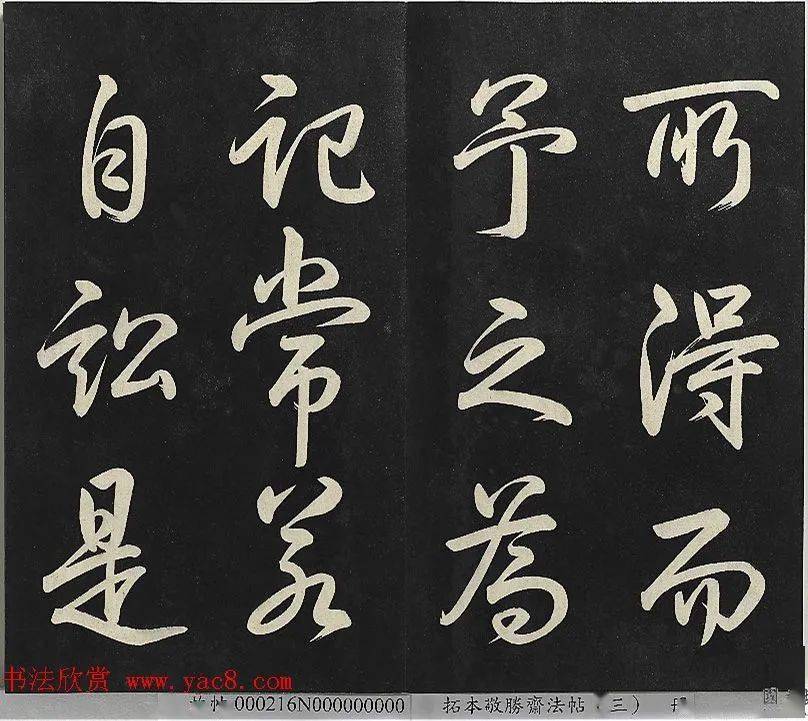 所得而
予之為
記常若
自訟是
书法欣赏 www.yac8.com
帖 000216N000000000
拓本敬勝齋法帖（三）